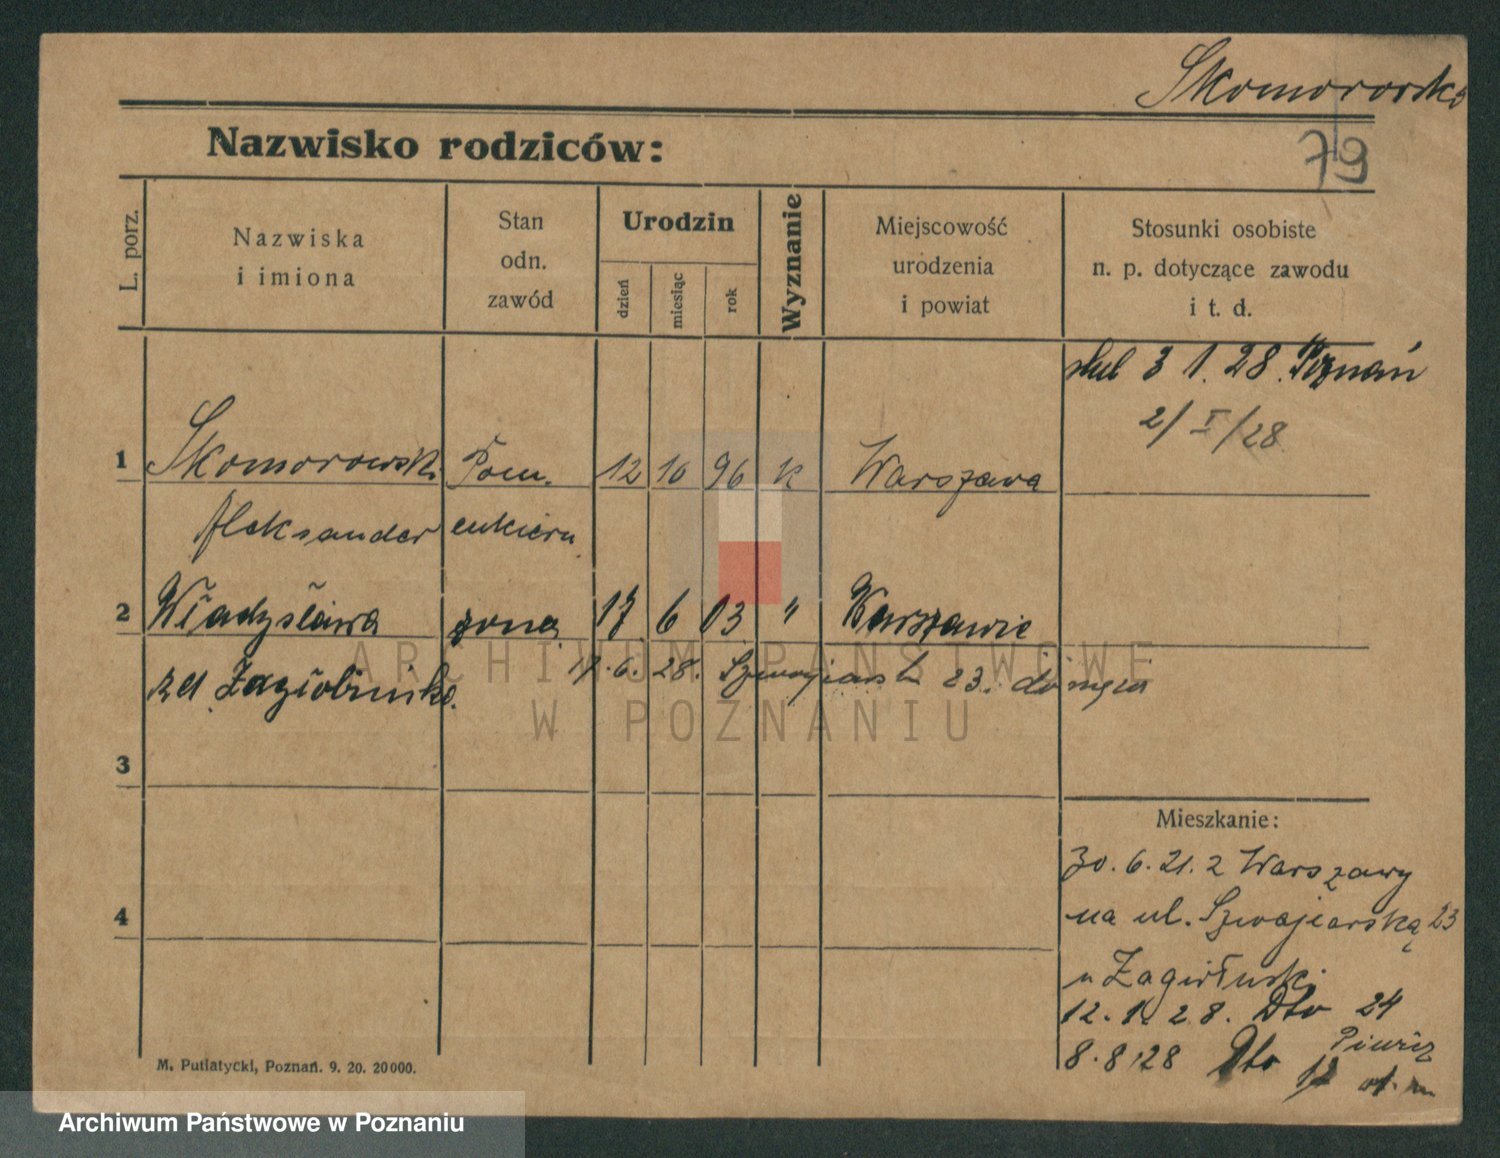 Skomorowski
79
Nazwisko rodziców:
L. porz.
Nazwiska
i imiona
Stan
odn.
zawód
Urodzin
dzień
miesiąc
rok
Wyznanie
Miejscowość
urodzenia
i powiat
Stosunki osobiste
n. p. dotyczące zawodu
i t. d.
ślub 3 1. 28. Poznań
2/I/28
1 Skomorowski Pom. 12 10 96 k Warszawa
Aleksander cukiern.
2 Władysława żona 17 6 03 " Warszawie
zd. Zagłobińska.
17.6.28. Szwajcarsk 23. do męża
3
4
Mieszkanie:
30. 6. 21. z Warszawy
na ul. Szwajcarską 23
u
12. 1. 28. Dto 24
8. 8. 28 Dto 17
M. Putiatycki, Poznań. 9. 20. 20000.
ARCHIWUM PAŃSTWOWE
W POZNANIU
Archiwum Państwowe w Poznaniu